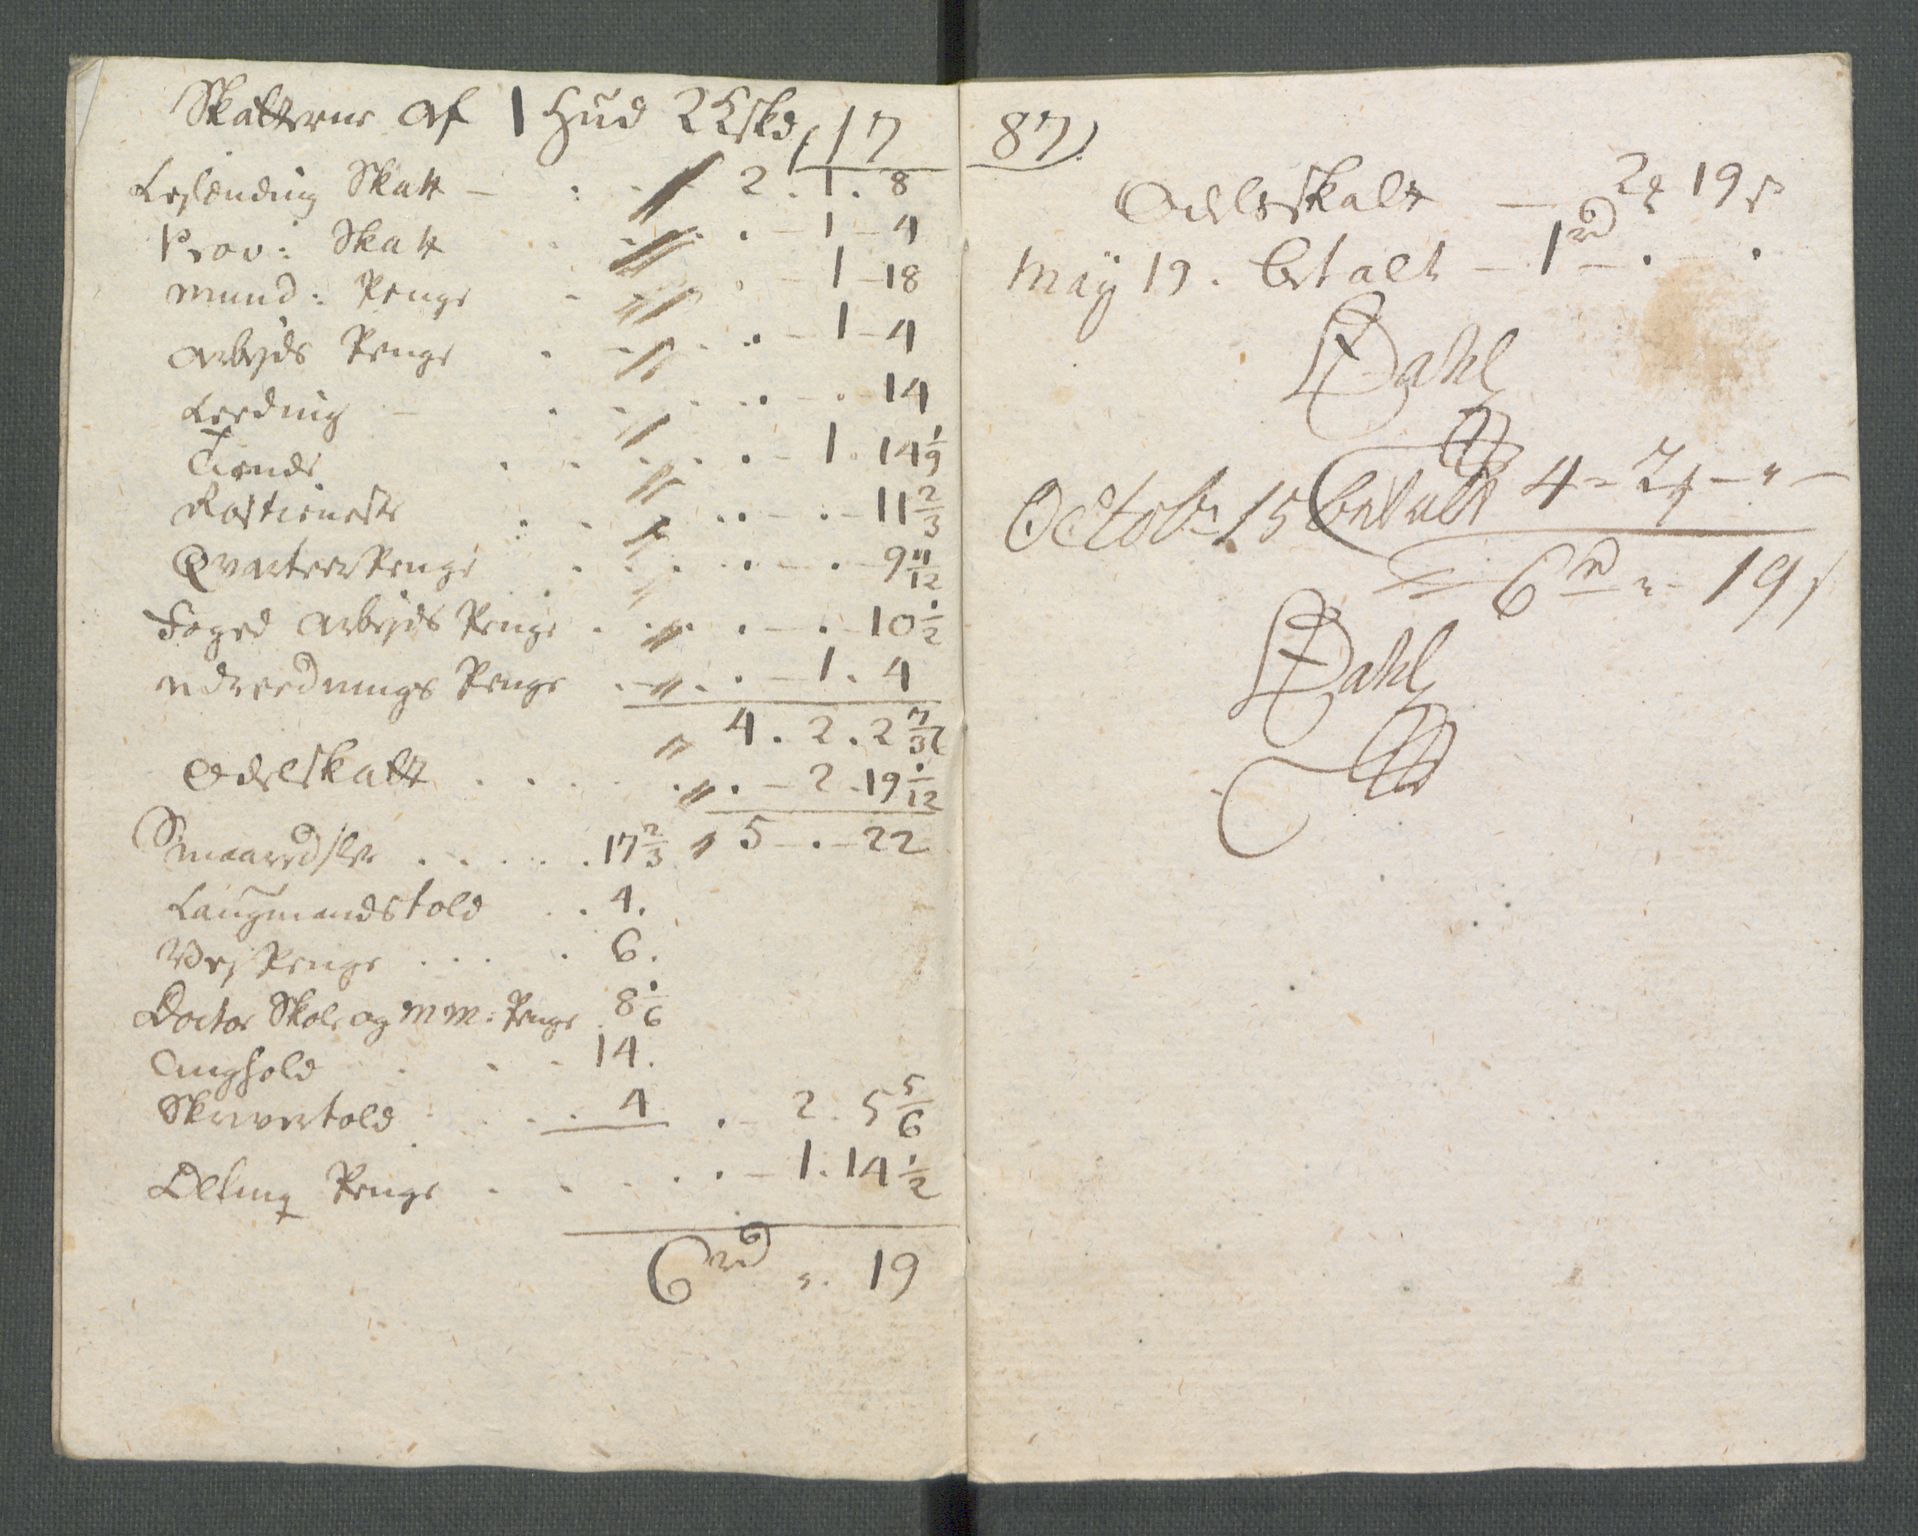 Skatterne af 1 Hud 2 Lskd, 17
Leylænding Skatt - 2. 1. 8
Prov: Skatt 1 - 4
Mund: Penge 1 - 18
Arbejds Penge 1 - 4
Leeding 14
Tiende 1. 14 1/9
Rostieneste 11 2/3
Qvarteer Penge 9 11/12
Foged Arbejds Penge 10 1/2
Udreednings Penge 1. 4
4. 2. 2
Odelskatt 2. 19 1/12
Smaaredsler 17 2/3 5 - . - 22
Laugmandstold 4.
Vej Penge 6.
Doctor Skole og MM: Penge 8 1/6
Tinghold 14.
Skrivertold 4 2. 5 5/6
Delinq Penge 1. 14 1/2
6 rd 19
87)
Odelsskatt - 2 19 s
May 19. betalt - 1 rd - . .
Dahl
Octobr 15 betalt 4 - 2 - " -
6 rd " - 19 s
Dahl